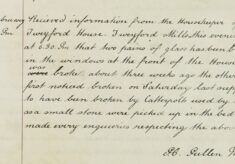 bruary Received information from the Housekeeper of
Pm Twyford House. Twyford Mill this evening
at 6.30. Pm that two panes of glass has been b
in the windows at the front of the House
was
broke about three weeks ago the other
first noticed broken on Saturday last supp
to have been broken by Cattopols used by
as a small stone were picked up in the bed
made every enquiries respecting the abo
H. Pullen P